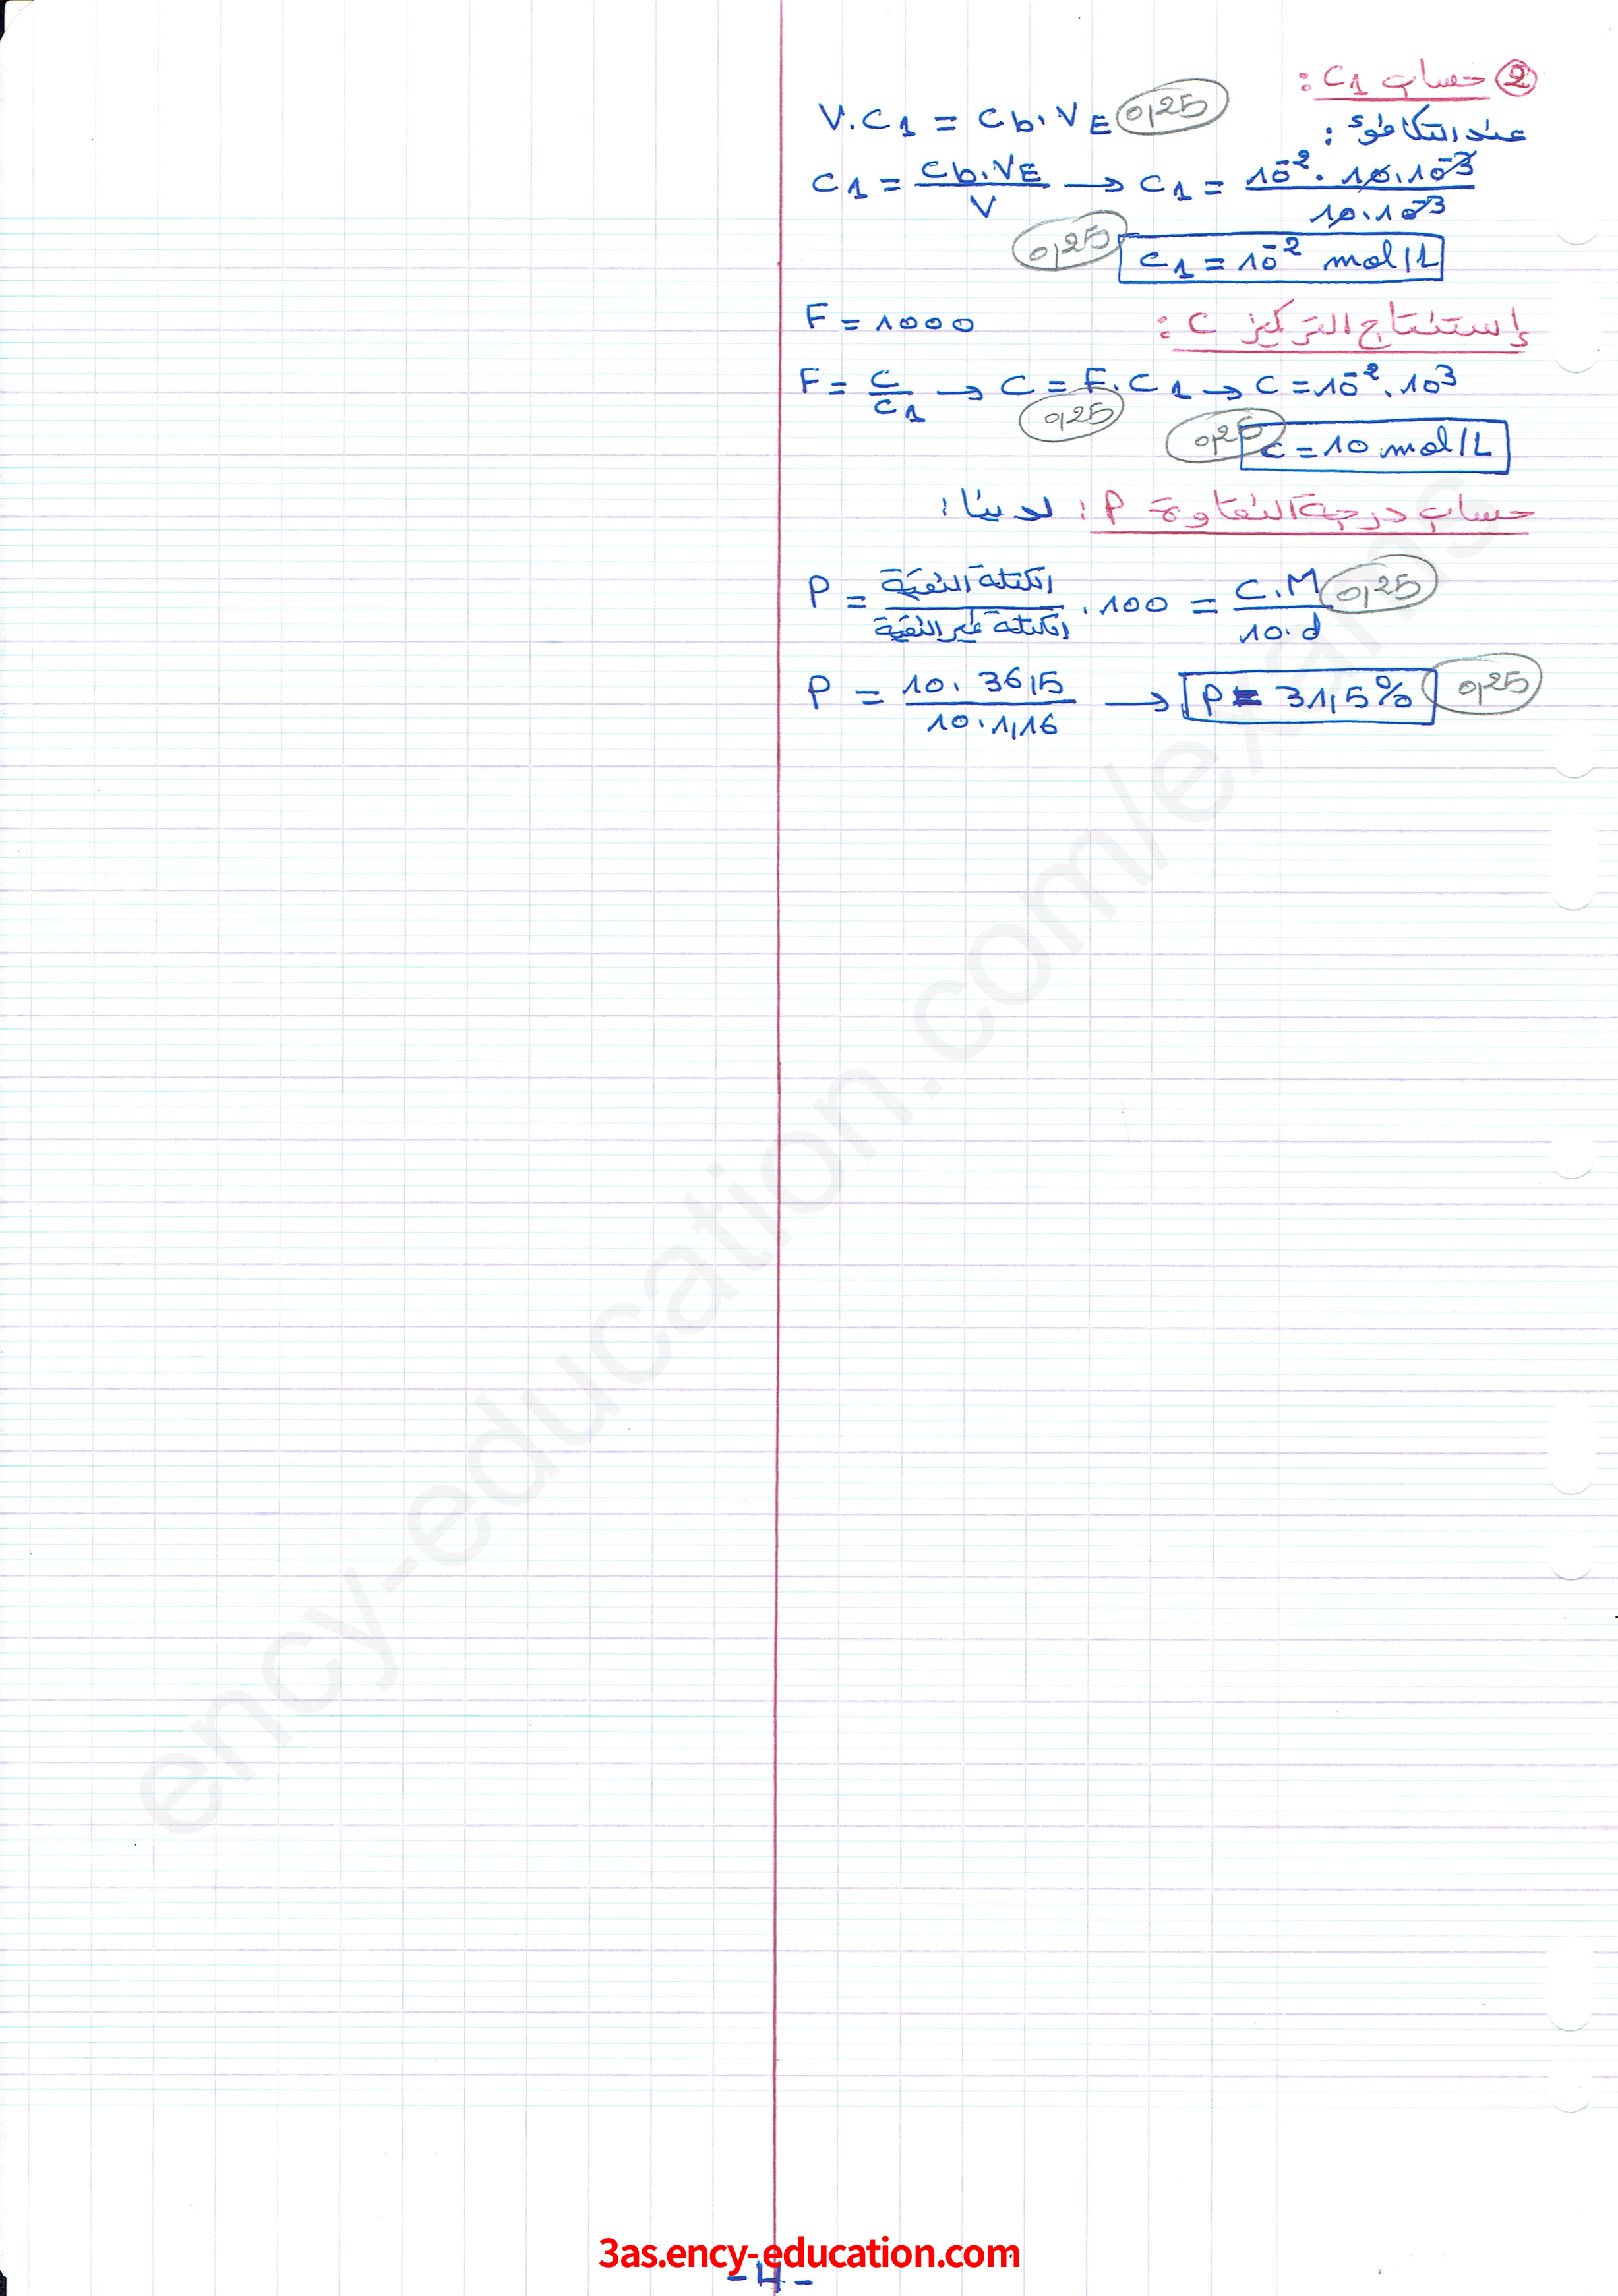 ② حساب C1 :
عند التكافؤ :
V.C1 = Cb.VE 0,25
C1 = Cb.VE / V → C1 = 10^-2 . 10.10^-3 / 10.10^-3
0,25 C1 = 10^-2 mol/L
إستنتاج التركيز C :
F = 1000
F = C / C1 → C = F.C1 → C = 10^-2 . 10^3
0,25
0,25 C = 10 mol/L
حساب درجة النقاوة P : لدينا :
P = الكتلة النقية / الكتلة غير النقية . 100 = C.M / 10.d 0,25
P = 10. 36,5 / 10.1,16 → P = 31,5% 0,25
ency-education.com/exams
3as.ency-education.com
- 4 -